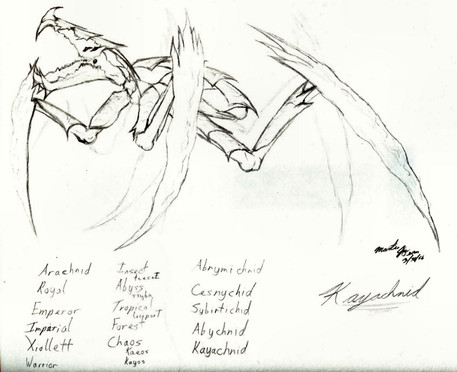 Arachnid
Royal
Emperor
Imperial
Xiollett
Warrior
Insect
Abyss
Tropical
Forest
Chaos
Kaeos
Kayos
Abnymichnid
Cesnychid
Sybirtichid
Abychnid
Kayachnid
Kayachnid